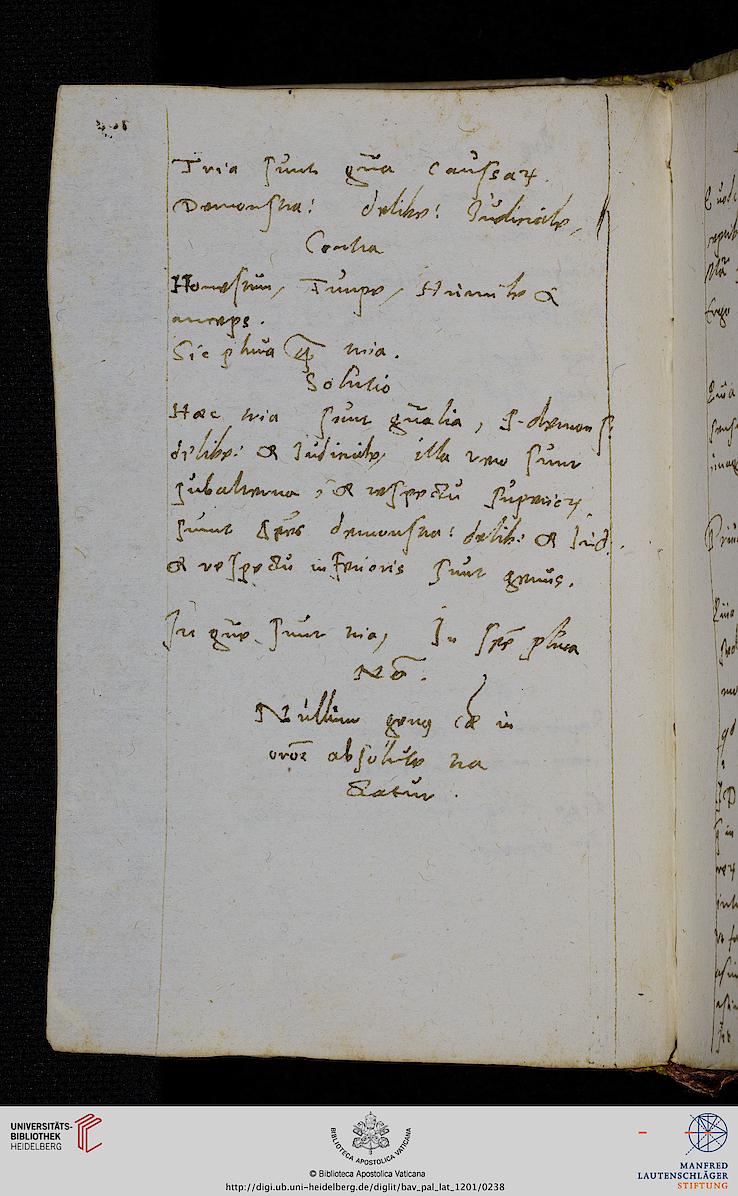 Tria sunt gn̄a caussaꝝ.
Demonstra: delibe: Judiciale,
Contra
Honestum, Turpe, Humile &
anceps.
Sic plura qꝫ tria.
Solutio
Haec tria sunt gn̄alia, s. demonst:
delibe: & Judiciale, illa vero sunt
subalterna, & respectu superioꝝ
sunt spēs demonstra: delib: & Jud.
& respectu inferioris sunt genus.
In gn̄e sunt tria, In spē plura
No.
Nullum genus in
orōe absolute tra
datur.
UNIVERSITÄTS-
BIBLIOTHEK
HEIDELBERG
BIBLIOTECA APOSTOLICA VATICANA
© Biblioteca Apostolica Vaticana
http://digi.ub.uni-heidelberg.de/diglit/bav_pal_lat_1201/0238
MANFRED
LAUTENSCHLÄGER
STIFTUNG